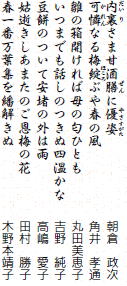 内裏さま甘酒膳に優姿　朝倉　政次
可憐なる梅綻ぶや春の風　角井　孝通
雛の箱開ければ母の匂ひとも　丸田美恵子
いつまでも話しのつきぬ四温かな　吉野　純子
豆餅のついて安堵の外は雨　高嶋　愛子
姑逝きしあまたのご恩梅の花　田村　勝子
春一番万葉集を繙解きぬ　木野本靖子